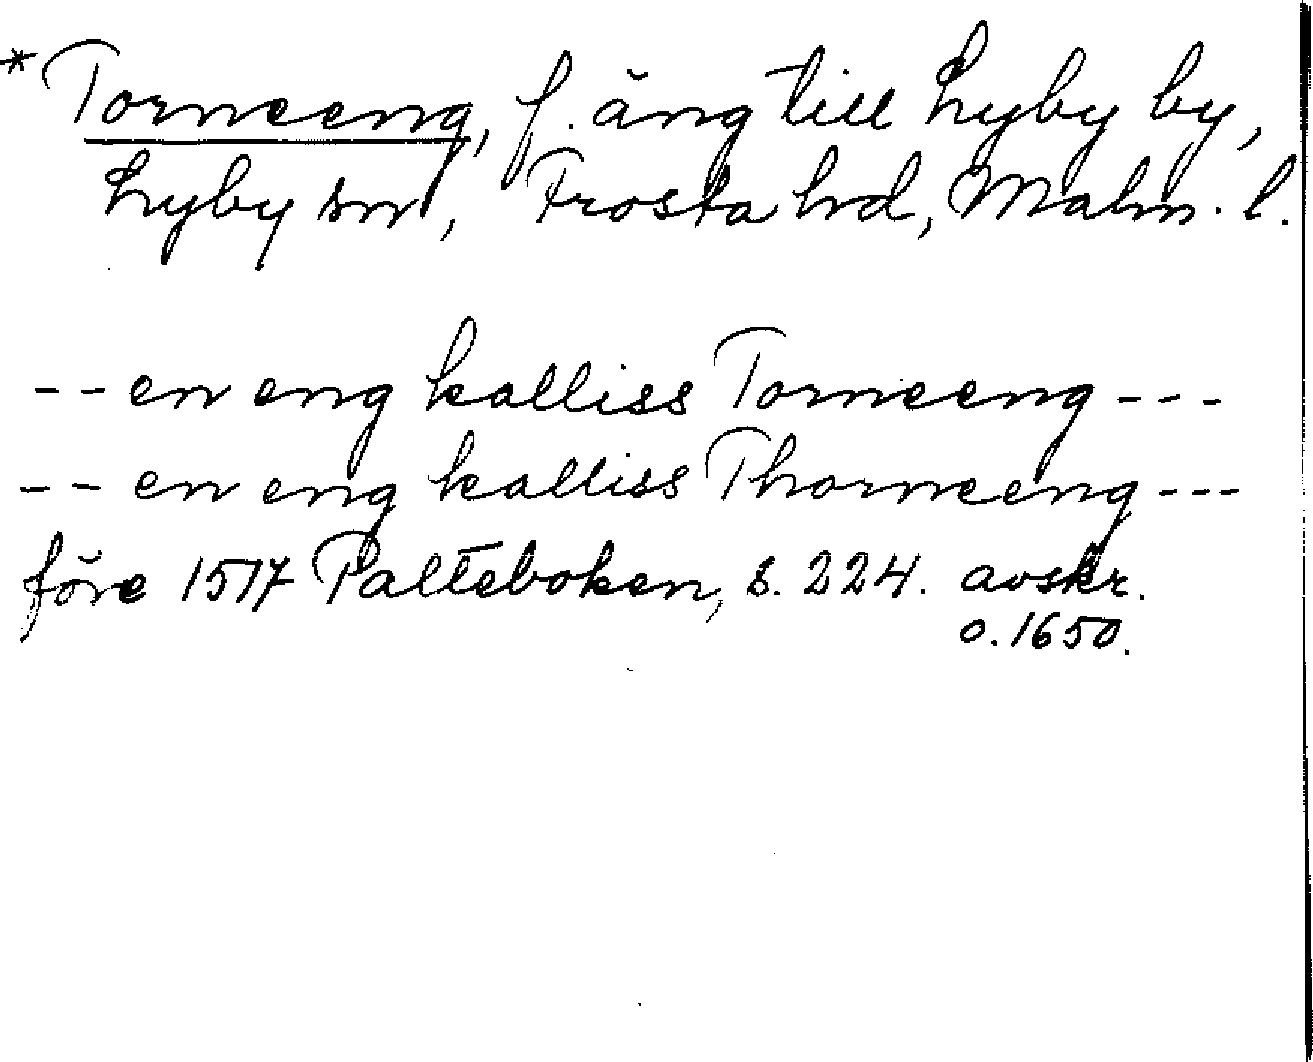 * Torneeng, f. äng till Lyby by,
Lyby sn, Frosta hd, Malm. l.
-- en eng kalliss Torneeng ---
-- en eng kalliss Thorneeng ---
före 1517 Palteboken, s. 224. avskr.
o. 1650.